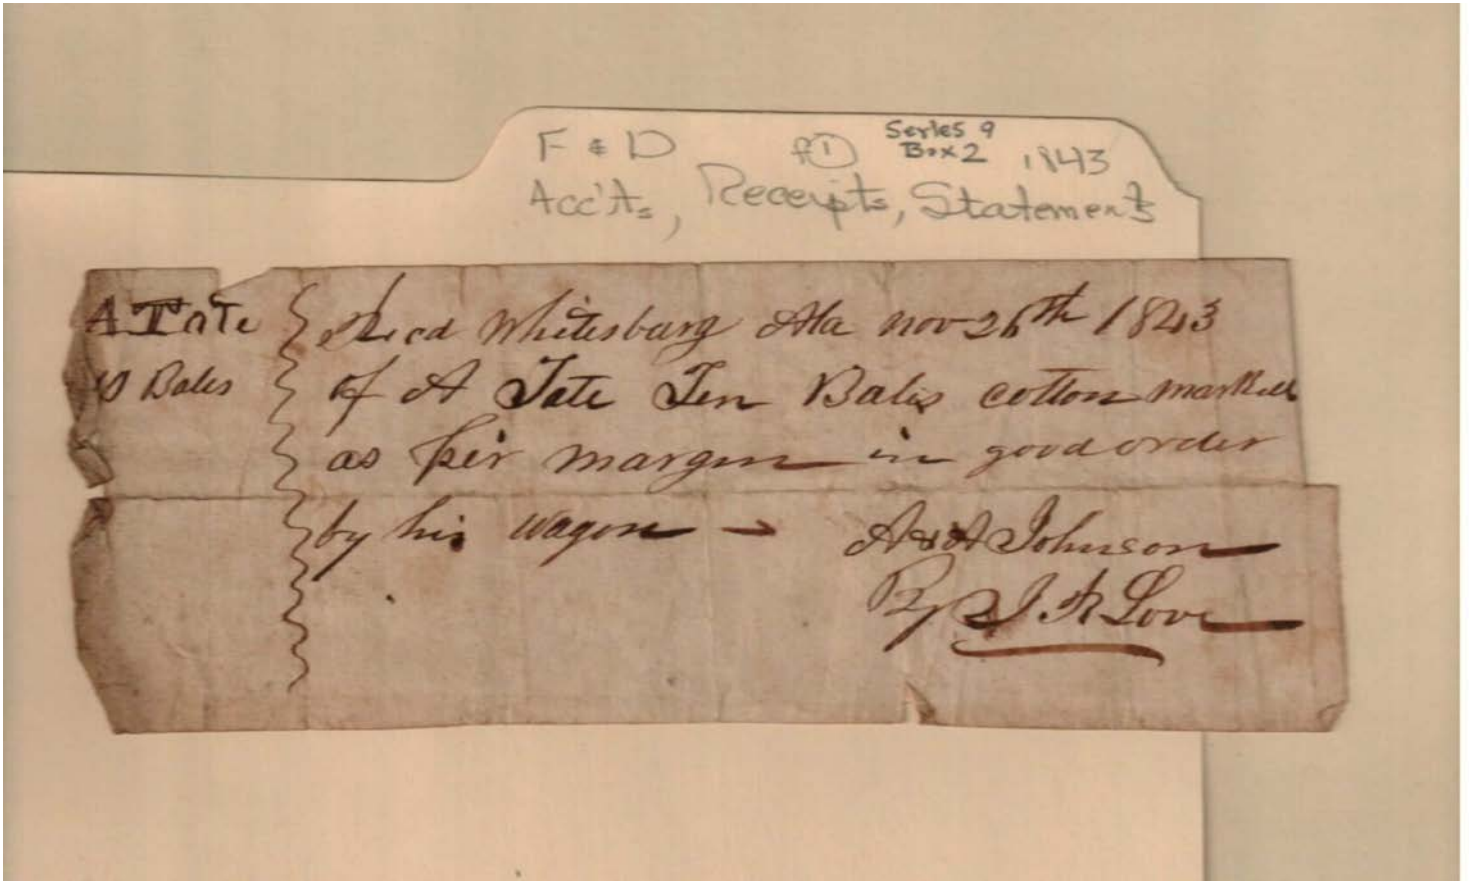 F & D f① Series 9
Box 2 1843
Acc'ts, Receipts, Statements
A Tate
10 Bales
Recd Whitesburg Ala nov 26th 1843
of A Tate Ten Bales cotton marked
as per margin in good order
by his wagon
A & A Johnson
By J A Love